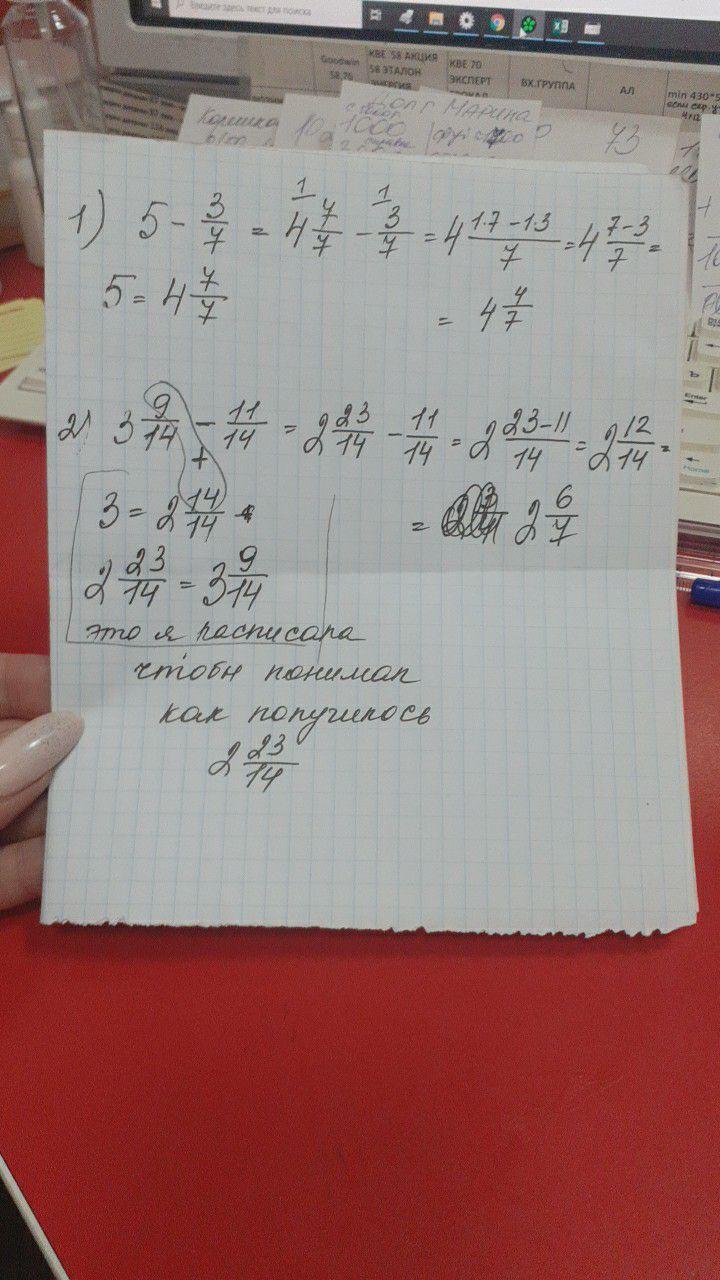 Введите здесь текст для поиска
Goodwin
58,76
КВЕ 58 АКЦИЯ
58 ЭТАЛОН
ЭНЕРГИЯ
КВЕ 70
ЭКСПЕРТ
ВХ.ГРУППА
АЛ
min 430*5
МАРИНА
1000
73
1) 5 - 3/7 = 4 7/7 - 3/7 = 4 1·7-1·3/7 = 4 7-3/7 =
1 1
5 = 4 7/7
= 4 4/7
2) 3 9/14 - 11/14 = 2 23/14 - 11/14 = 2 23-11/14 = 2 12/14 =
+
3 = 2 14/14
= 2 6/7
2 23/14 = 3 9/14
это я расписала
чтобы понимал
как получилось
2 23/14
Enter